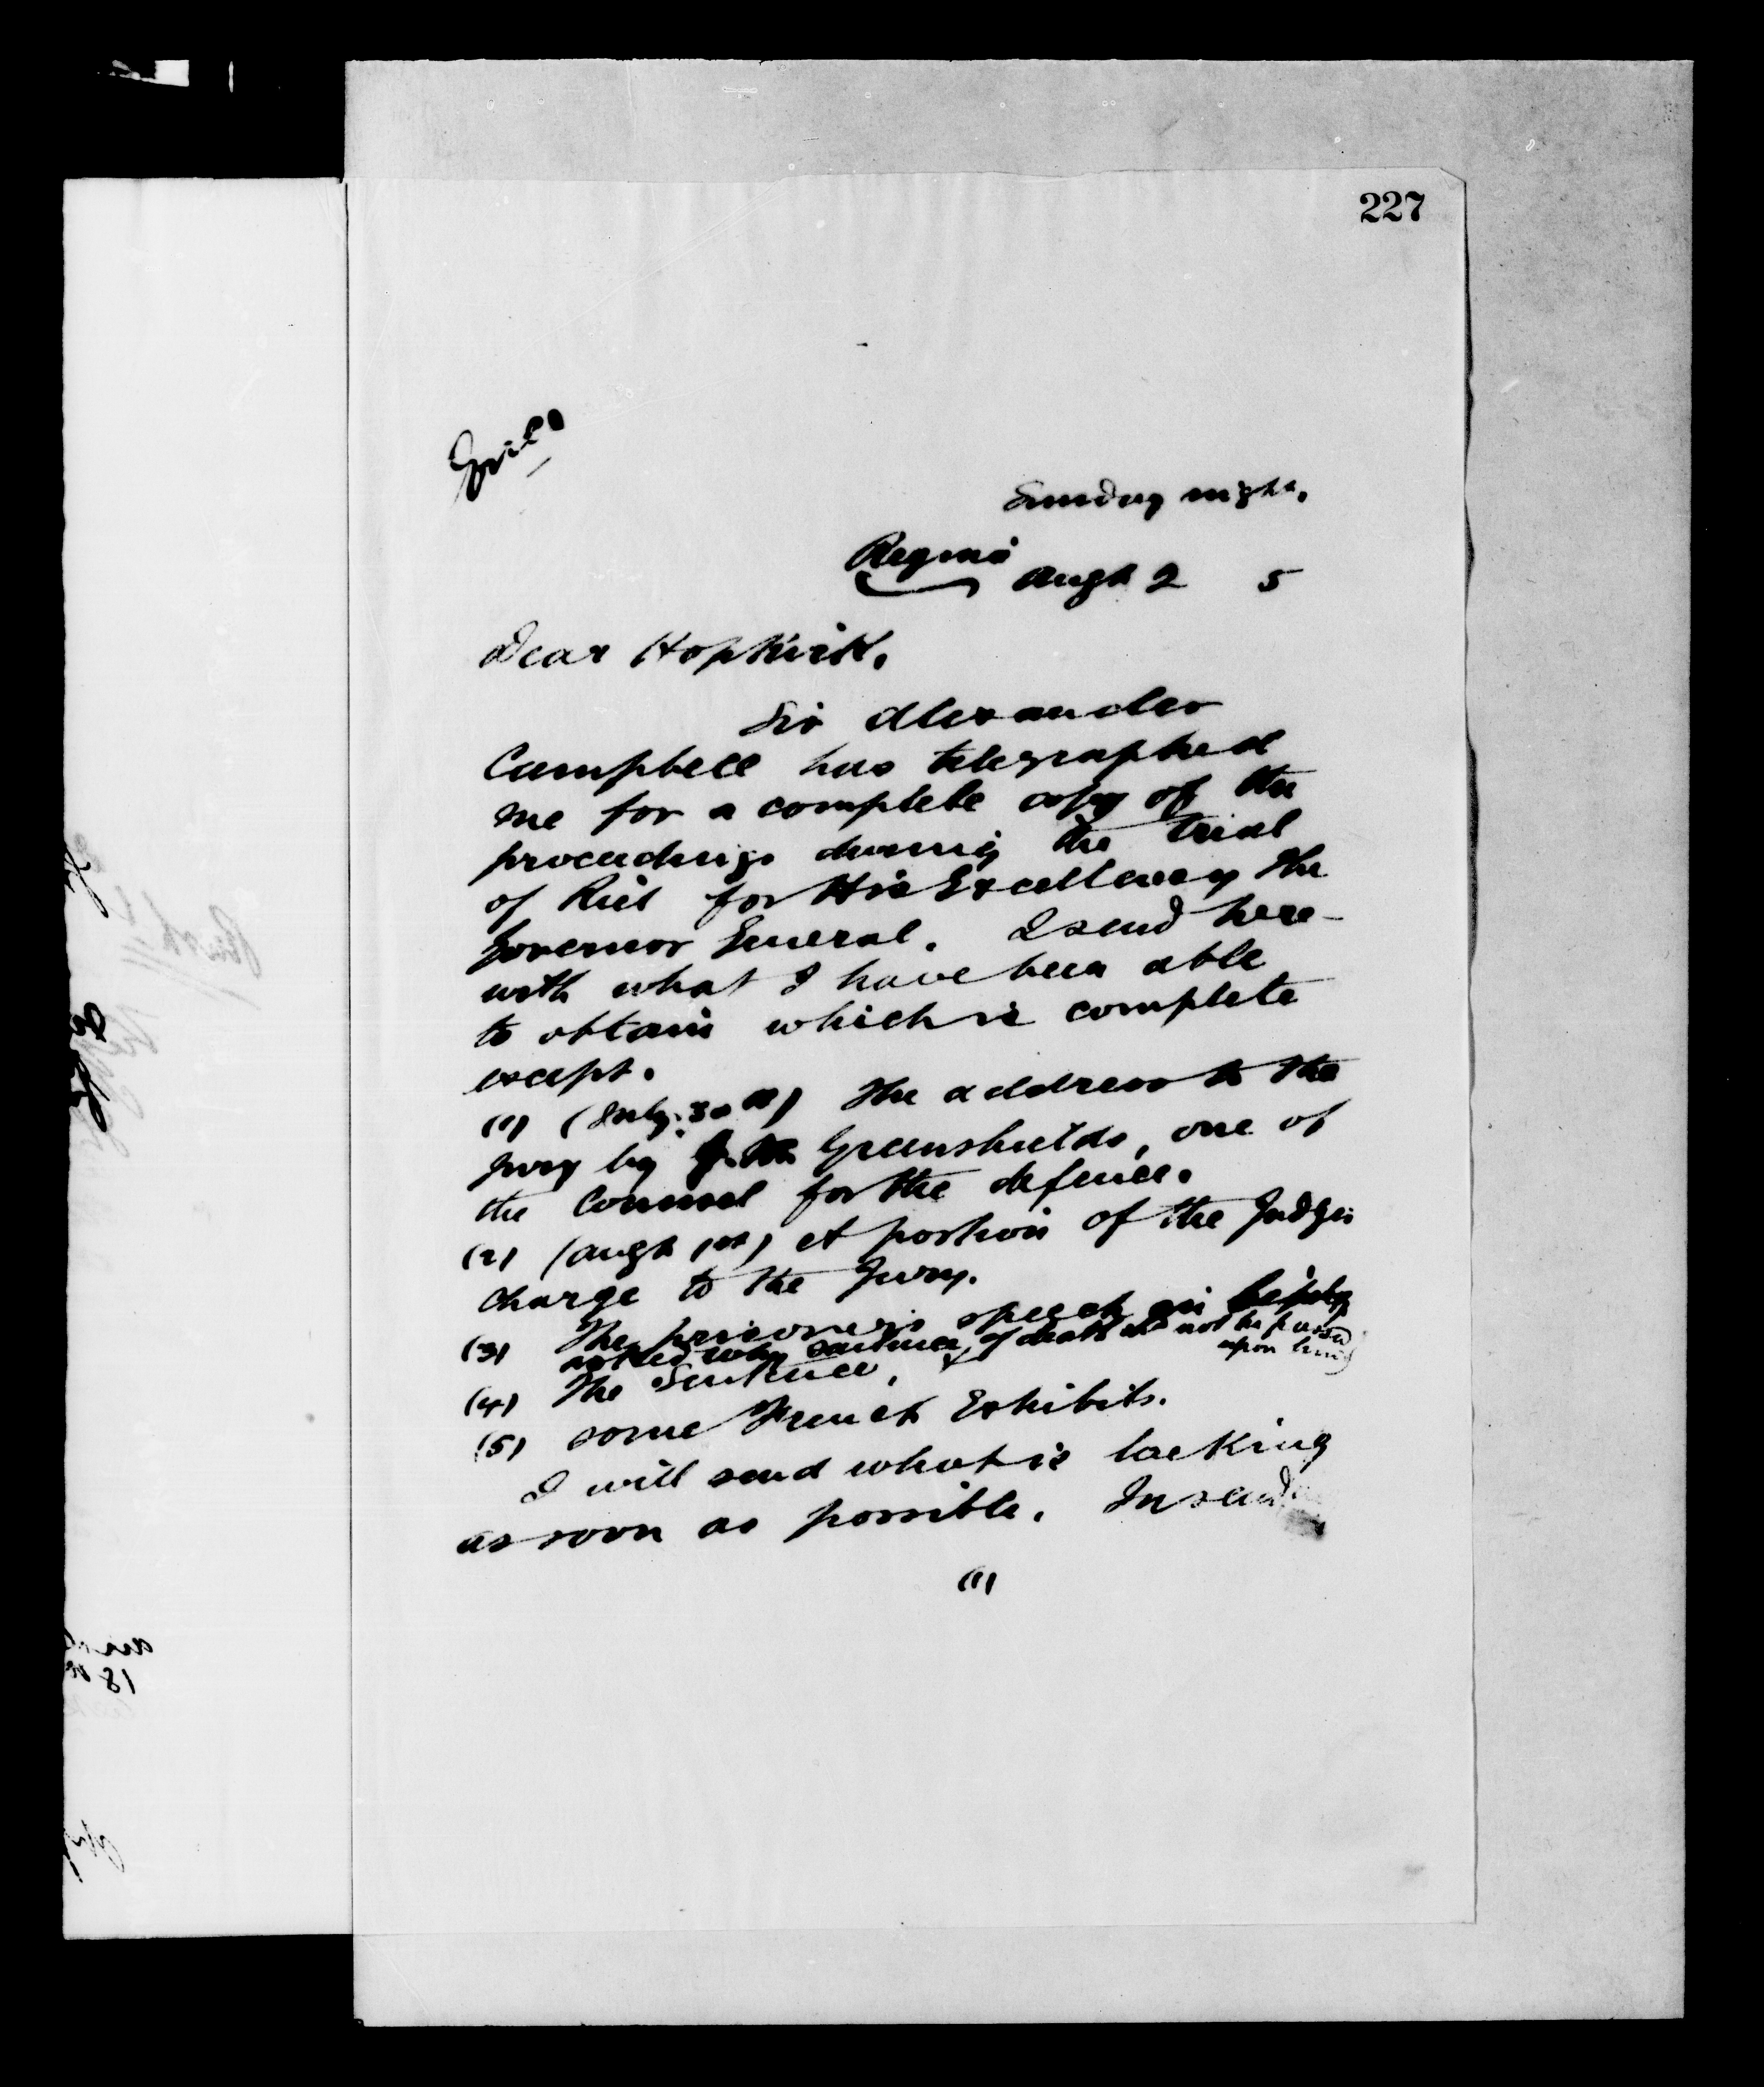 227
Sunday night.
Regina
Augt 2 5
Dear Hopkirk,
Sir Alexander
Campbell has telegraphed
me for a complete copy of the
proceedings during the trial
of Riel for His Excellency the
Governor General. I send here-
with what I have been able
to obtain which is complete
except.
(1) (July 30th) The address to the
jury by Greenshields, one of
the Counsel for the defence.
(2) (Augt 1st) A portion of the Judges
charge to the Jury.
(3) The prisoners speech on being
asked why sentence of death not be passed
upon him)
(4) The Sentence,
(5) some French Exhibits.
I will send what is lacking
as soon as possible. In send
(1)